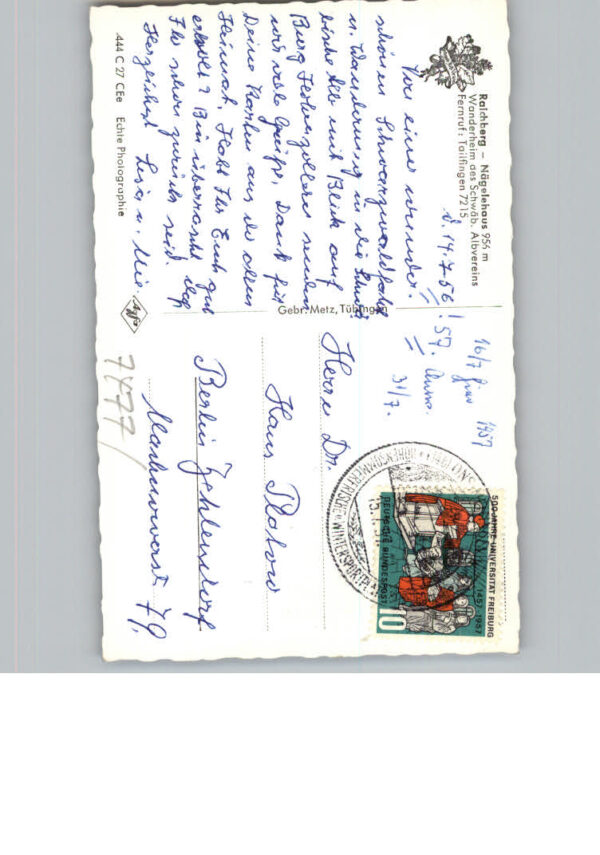 Raichberg – Nägelehaus 956 m
Wanderheim des Schwäb. Albvereins
Fernruf: Tailfingen 7215
d. 14.7.56!
57.
Von einer wunder-
schönen Schwarzwaldfahrt
u. Wanderung in die Schwä-
bische Alb mit Blick auf
Burg Hohenzollern senden
wir viele Grüße, Dank für
Deine Karten aus der alten
Heimat. Habt Ihr Euch gut
erholt? Bin überrascht daß
Ihr schon zurück seid.
Herzlichst Lisa u.
444 C 27 CEe Echte Photographie
Agfa
Gebr. Metz, Tübingen
16/7 1957
31/7.
500 JAHRE UNIVERSITÄT FREIBURG
1457-1957
DEUTSCHE BUNDESPOST
10
HÖHENSOMMERFRISCHE WINTERSPORTPLATZ
Herrn Dr.
Hans Platow
Berlin Zehlendorf
7477/